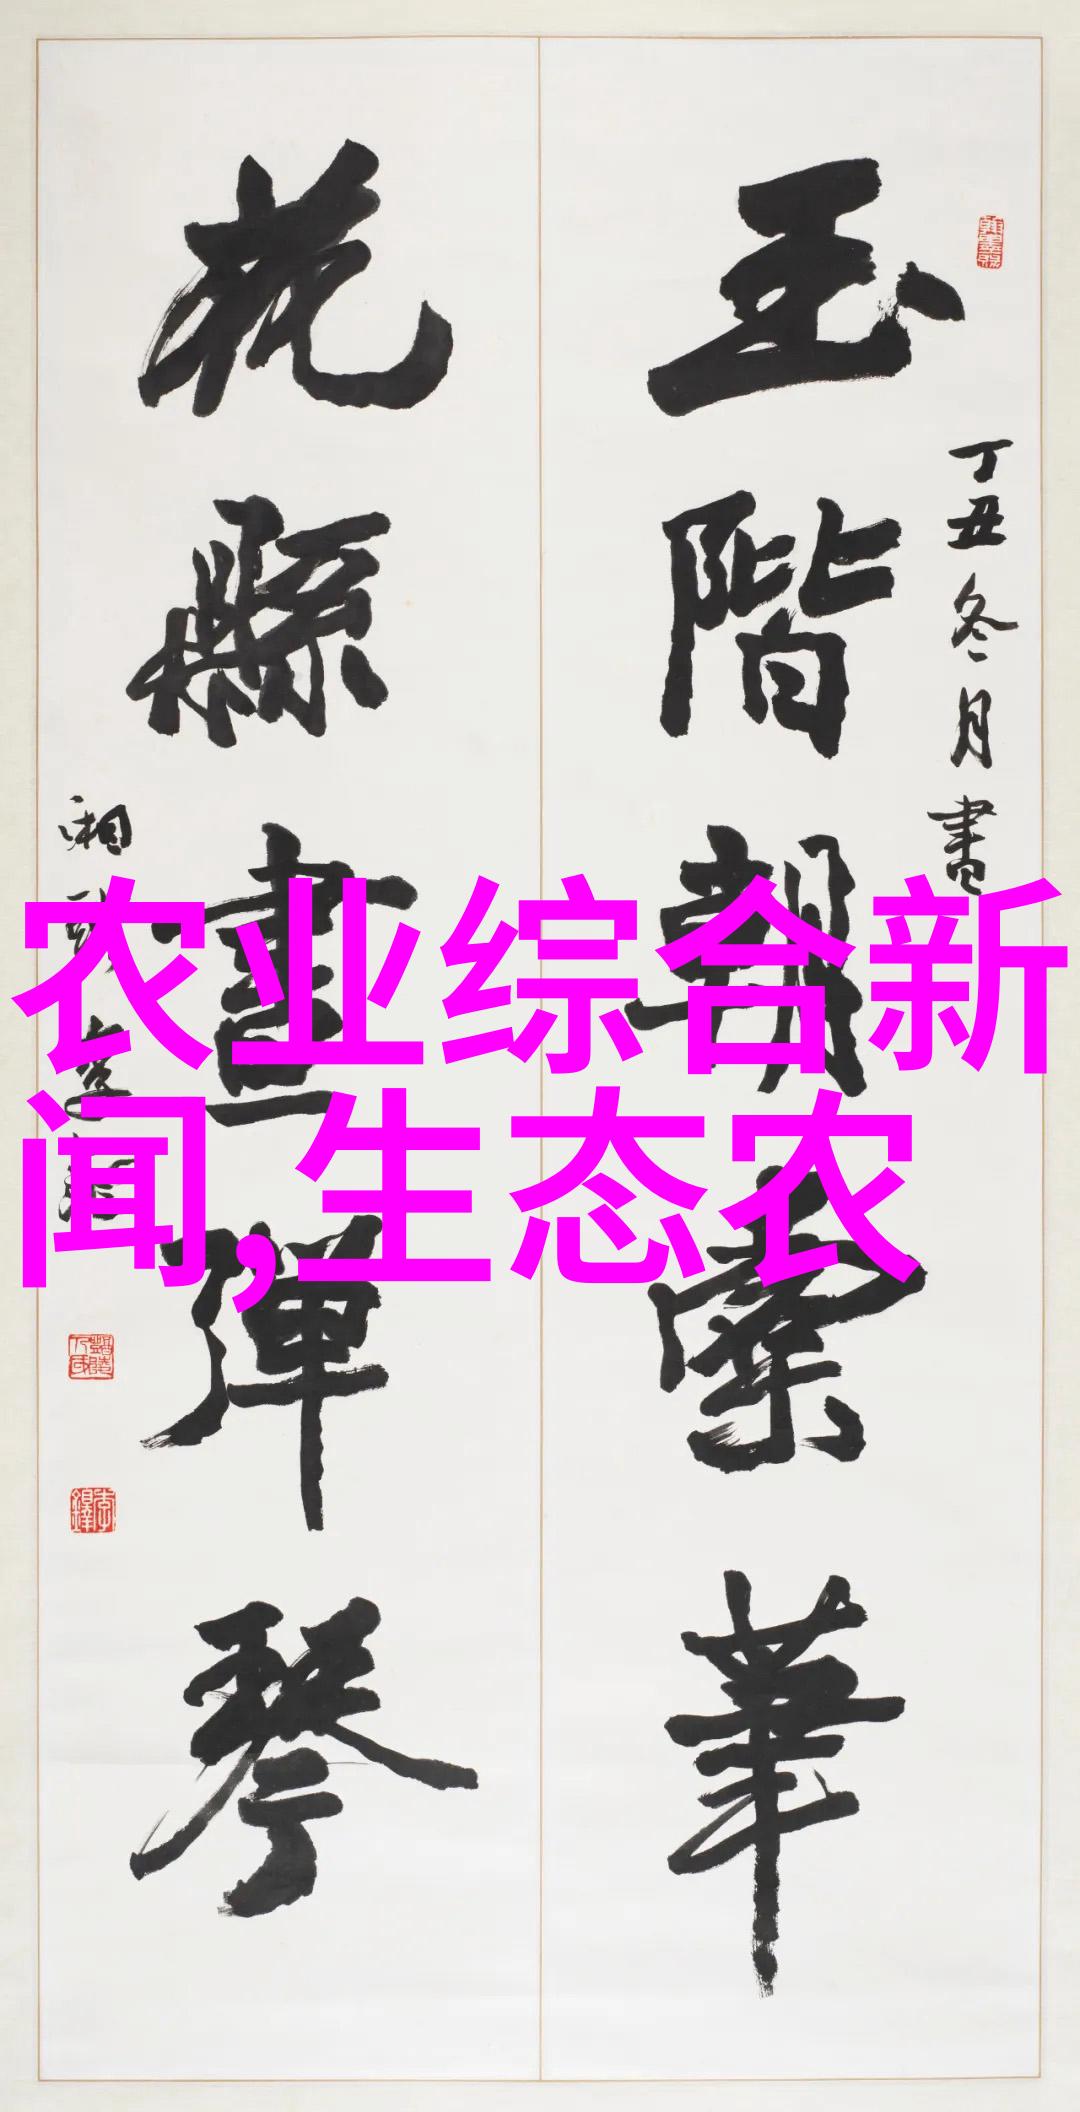 玉階朝縈華
丁丑冬月書
花縣晝彈琴
农业综合新
闻,生态农